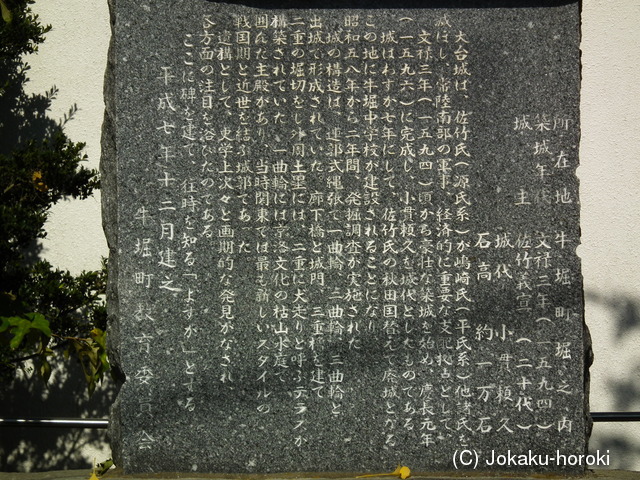 所在地 牛堀町堀之内
築城年代 文禄三年(一五九四)
城主 佐竹義宣(二十代)
城代 小貫頼久
石高 約一万石
大台城は、佐竹氏(源氏系)が嶋崎氏(平氏系)他諸氏を
滅ぼし、常陸南部の軍事、経済的に重要な支配拠点として、
文禄三年(一五九四)頃から豪壮な築城を始め、慶長元年
(一五九六)に完成し、小貫頼久を城代としたものである。
城はわずか七年にして、佐竹氏の秋田国替えで廃城となる。
この地に牛堀中学校が建設されることになり、
昭和五八年から二年間、発掘調査が実施された。
城の構造は、連郭式縄張で一曲輪、二曲輪、三曲輪と
出城で形成されていた。廊下橋と城門、三重櫓を建て
二重の堀切をし、外周土塁には、二重に犬走りと呼ぶテラスが
構築されていた。一曲輪には京洛文化の枯山水庭で
囲んだ主殿があり、当時関東では最も新しいスタイルの
戦国期と近世を結ぶ城郭であった。
遺構として、史学上次々と画期的な発見がなされ
各方面の注目を浴びたのである。
ここに碑を建て、往時を知る「よすが」とする。
平成七年十二月建之
牛堀町教育委員会
(C) Jokaku-horoki